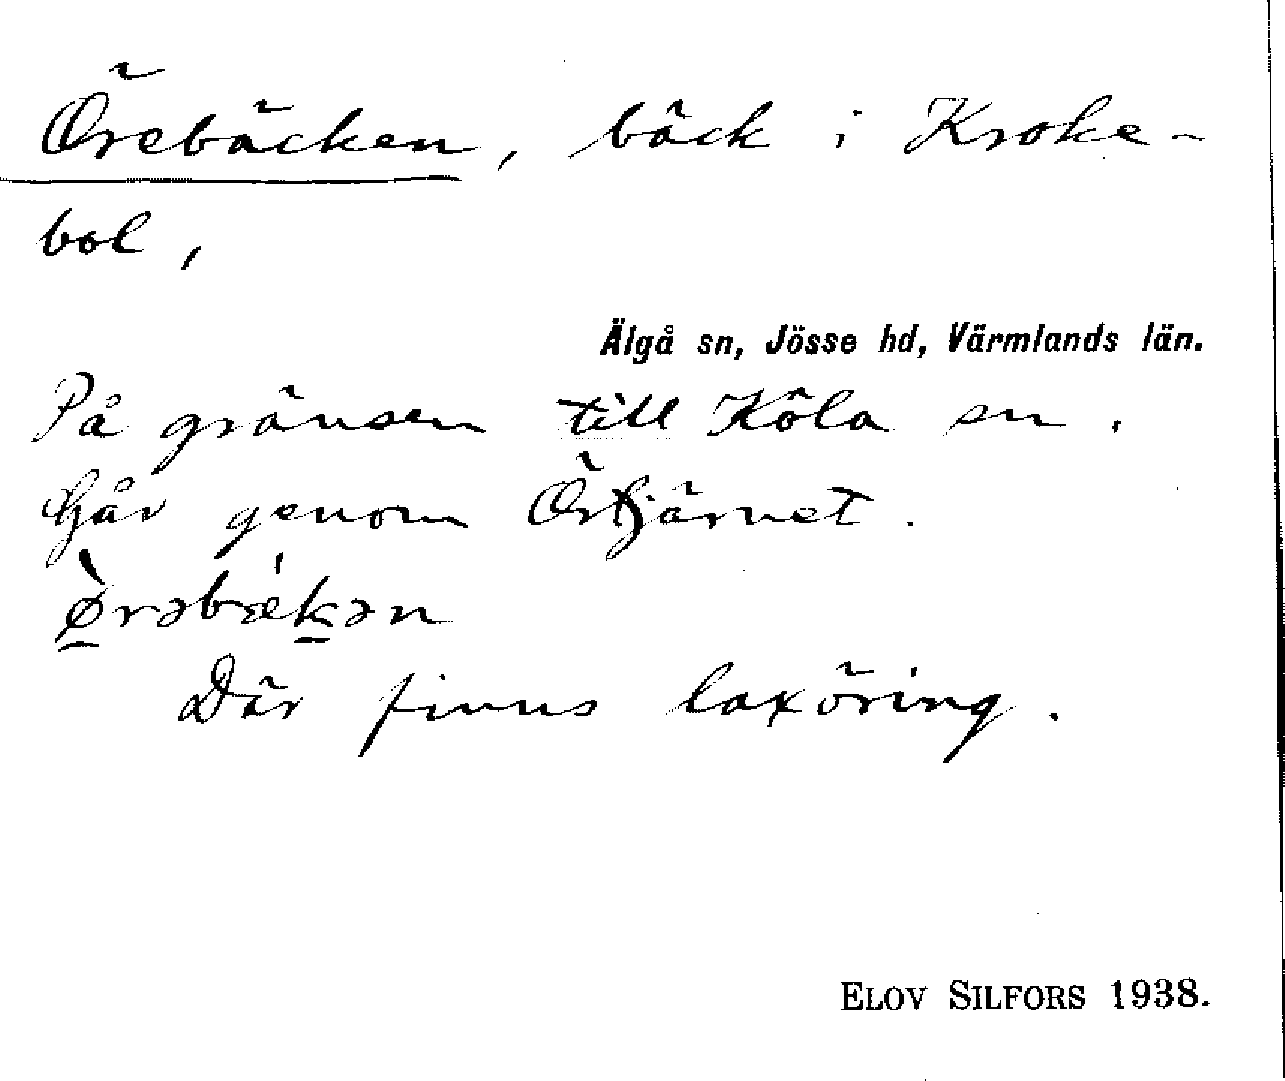 Örebäcken, bäck i Kroke-
bol,
Älgå sn, Jösse hd, Värmlands län.
På gränsen till Köla sn.
Går genom Örtjärnet.
ø̠̀rəbæ̀k̠ən
Där finns laxöring.
ELOV SILFORS 1938.